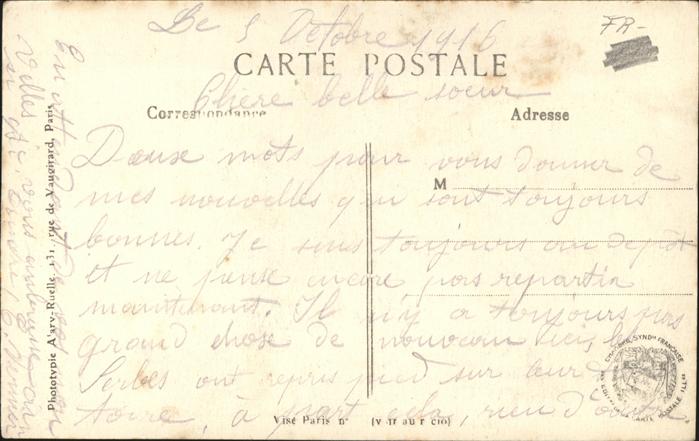 Le 5 Octobre 1916
FR-
CARTE POSTALE
Chère belle soeur
Correspondance
Adresse
Deux mots pour vous donner de
M
mes nouvelles qui sont toujours
bonnes. Je suis toujours au depôt
et ne pense encore pas repartir
maintenant. Il n'y a toujours pas
grand chose de nouveau ici, les
Serbes ont repris pied sur leur
toire, à part cela, rien d'autre
Visé Paris n° (voir au recto)
Phototypie A'ary-Ruelle, 131, rue de Vaugirard, Paris
En attendant de vos
nouvelles, je vous embrasse
CHAMBRE SYNDle FRANÇAISE